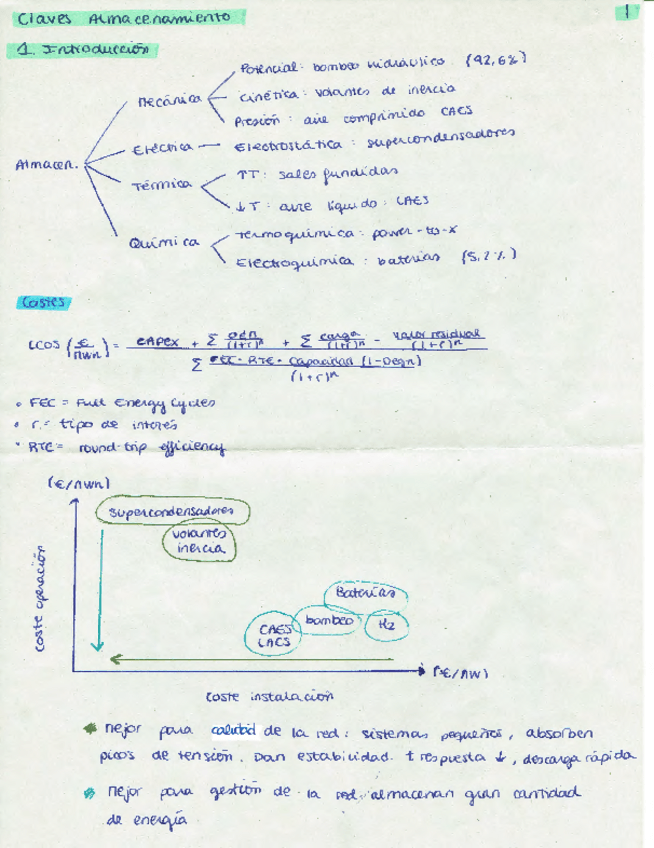 Claves Almacenamiento
1
1. Introducción
Almacen.
Mecánica
Potencial: bombeo hidráulico (92,6%)
Cinética: volantes de inercia
Presión: aire comprimido CAES
Eléctrica — Electrostática: supercondensadores
Térmica
↑T: sales fundidas
↓T: aire líquido: LAES
Química
Termoquímica: power-to-x
Electroquímica: baterías (5,2%)
Costes
LCOS (€/MWh) = CAPEX + Σ O&M/(1+r)^n + Σ carga/(1+r)^n - valor residual/(1+r)^n
Σ FEC · RTE · Capacidad (1-Degn)
(1+r)^n
• FEC = Full Energy Cycles
• r = tipo de interés
• RTE = round-trip efficiency
(€/MWh)
Coste operación
supercondensadores
volantes
inercia
Baterías
bombeo
H2
CAES
LAES
(€/MW)
Coste instalación
* Mejor para calidad de la red: sistemas pequeños, absorben
picos de tensión. Dan estabilidad. t respuesta ↓, descarga rápida
* Mejor para gestión de la red: almacenan gran cantidad
de energía